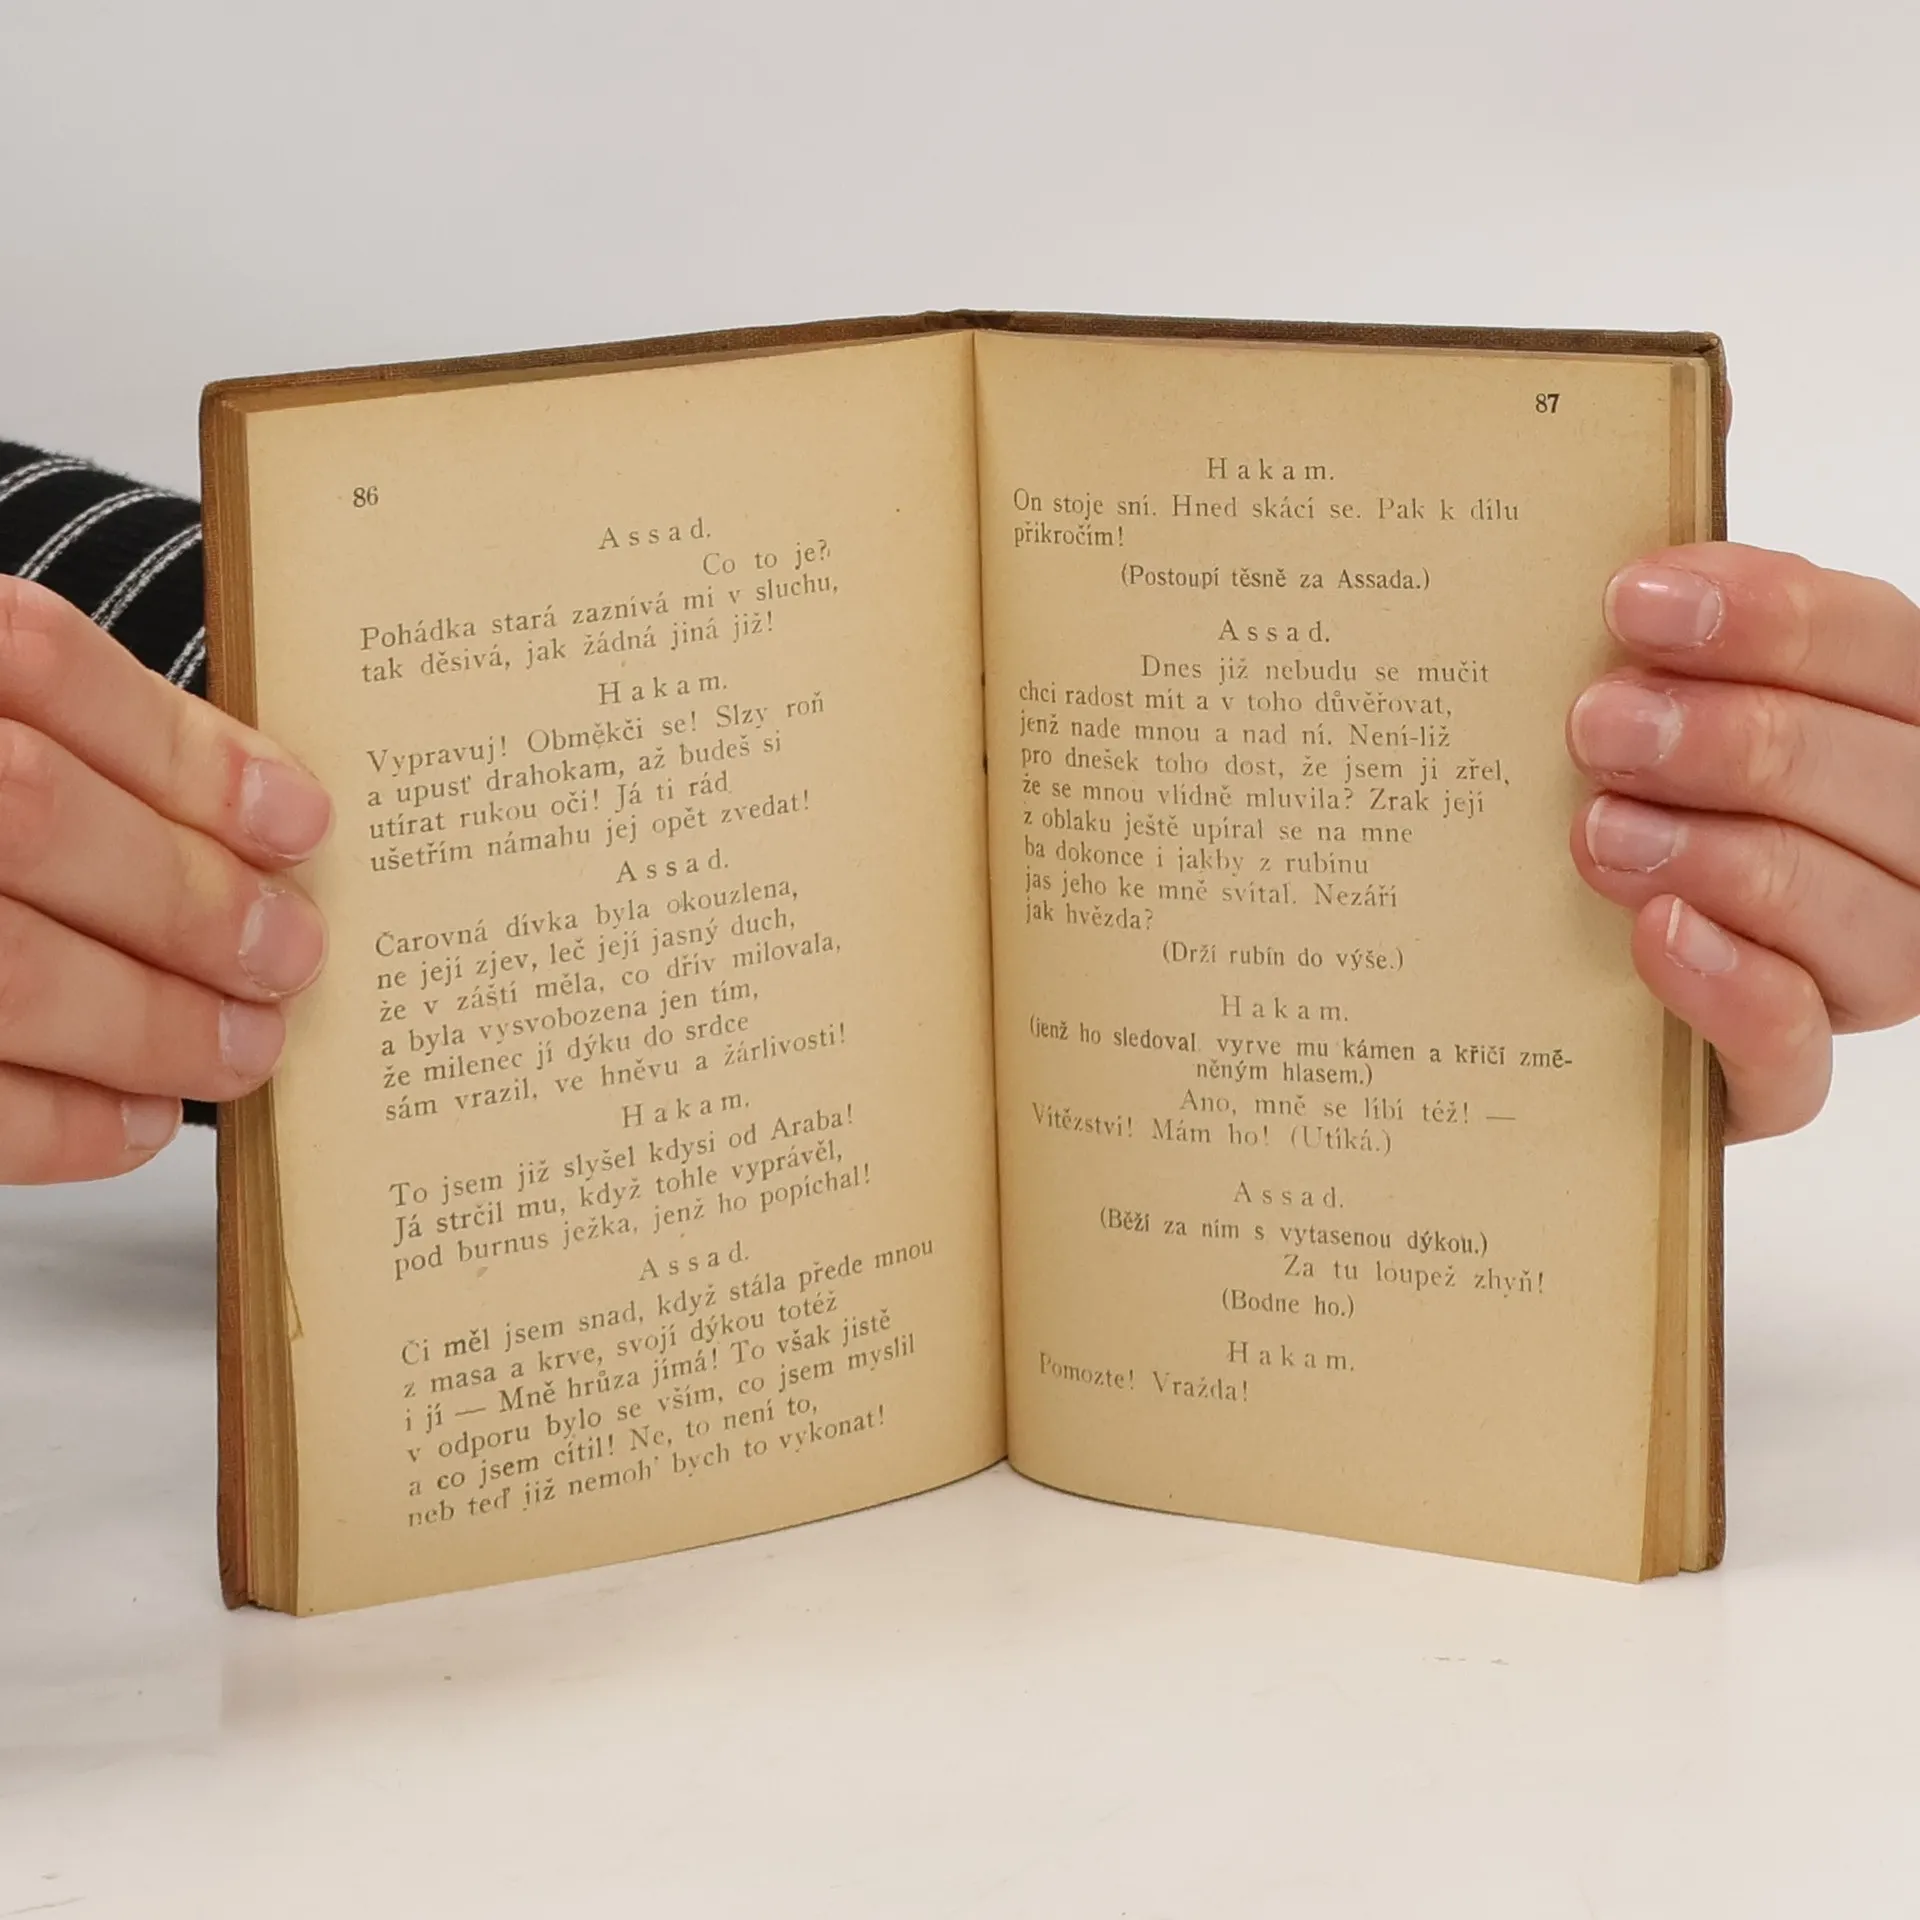 86
Assad.
Co to je?
Pohádka stará zaznívá mi v sluchu,
tak děsivá, jak žádná jiná již!
Hakam.
Vypravuj! Obměkči se! Slzy roň
a upusť drahokam, až budeš si
utírat rukou oči! Já ti rád
ušetřím námahu jej opět zvedat!
Assad.
Čarovná dívka byla okouzlena,
ne její zjev, leč její jasný duch,
že v záští měla, co dřív milovala,
a byla vysvobozena jen tím,
že milenec jí dýku do srdce
sám vrazil, ve hněvu a žárlivosti!
Hakam.
To jsem již slyšel kdysi od Araba!
Já strčil mu, když tohle vyprávěl,
pod burnus ježka, jenž ho popíchal!
Assad.
Či měl jsem snad, když stála přede mnou
z masa a krve, svojí dýkou totéž
i jí — Mně hrůza jímá! To však jistě
v odporu bylo se vším, co jsem myslil
a co jsem cítil! Ne, to není to,
neb teď již nemoh' bych to vykonat!
87
Hakam.
On stoje sní. Hned skácí se. Pak k dílu
přikročím!
(Postoupí těsně za Assada.)
Assad.
Dnes již nebudu se mučit
chci radost mít a v toho důvěřovat,
jenž nade mnou a nad ní. Není-liž
pro dnešek toho dost, že jsem ji zřel,
že se mnou vlídně mluvila? Zrak její
z oblaku ještě upíral se na mne
ba dokonce i jakby z rubínu
jas jeho ke mně svítal. Nezáří
jak hvězda?
(Drží rubín do výše.)
Hakam.
(jenž ho sledoval vyrve mu kámen a křičí změ-
něným hlasem.)
Ano, mně se líbí též! —
Vítězství! Mám ho! (Utíká.)
Assad.
(Běží za ním s vytasenou dýkou.)
Za tu loupež zhyň!
(Bodne ho.)
Hakam.
Pomozte! Vražda!